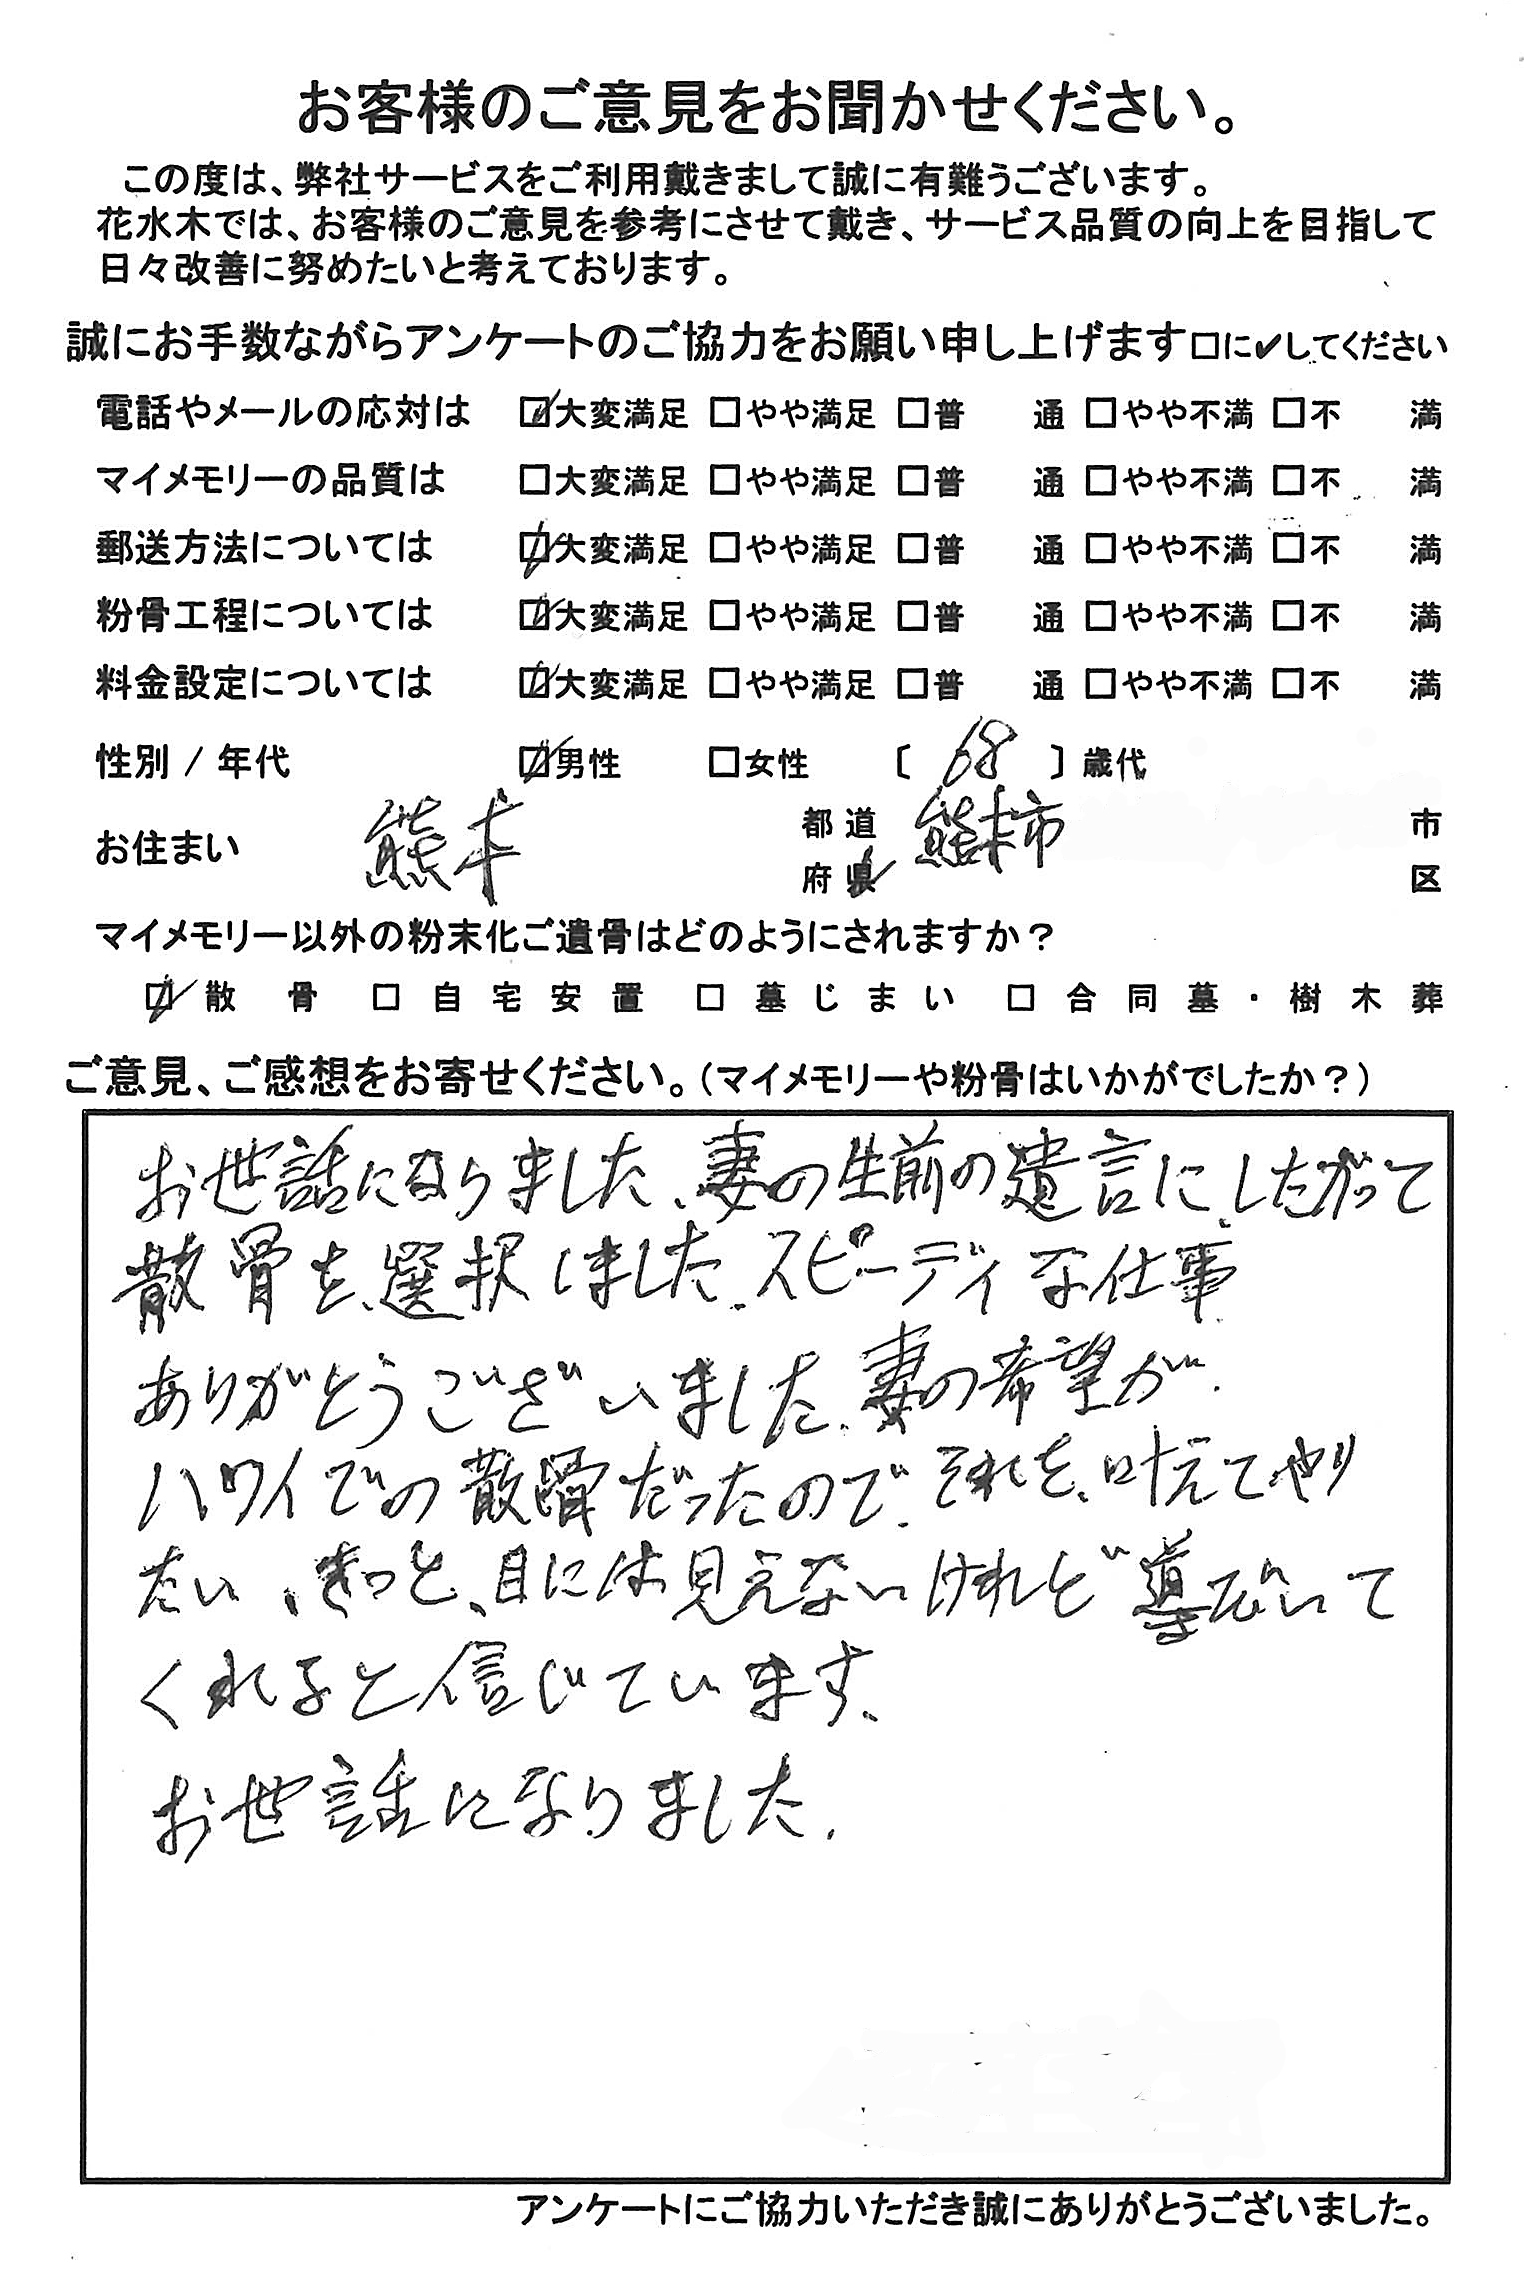 お客様のご意見をお聞かせください。
この度は、弊社サービスをご利用戴きまして誠に有難うございます。
花水木では、お客様のご意見を参考にさせて戴き、サービス品質の向上を目指して
日々改善に努めたいと考えております。
誠にお手数ながらアンケートのご協力をお願い申し上げます□に✔してください
電話やメールの応対は ☑大変満足 □やや満足 □普 通 □やや不満 □不 満
マイメモリーの品質は □大変満足 □やや満足 □普 通 □やや不満 □不 満
郵送方法については ☑大変満足 □やや満足 □普 通 □やや不満 □不 満
粉骨工程については ☑大変満足 □やや満足 □普 通 □やや不満 □不 満
料金設定については ☑大変満足 □やや満足 □普 通 □やや不満 □不 満
性別 / 年代 ☑男性 □女性 〔 68 〕歳代
お住まい 熊本 都道府県 熊本市 市区
マイメモリー以外の粉末化ご遺骨はどのようにされますか？
☑散骨 □自宅安置 □墓じまい □合同墓・樹木葬
ご意見、ご感想をお寄せください。（マイメモリーや粉骨はいかがでしたか？）
お世話になりました、妻の生前の遺言に、したがって
散骨を、選択しました。スピーディな仕事
ありがとうございました。妻の希望が、
ハワイでの散骨だったので、それを、叶えてやり
たい、きっと、目には見えないけれど導びいて
くれると信じています、
お世話になりました。
アンケートにご協力いただき誠にありがとうございました。